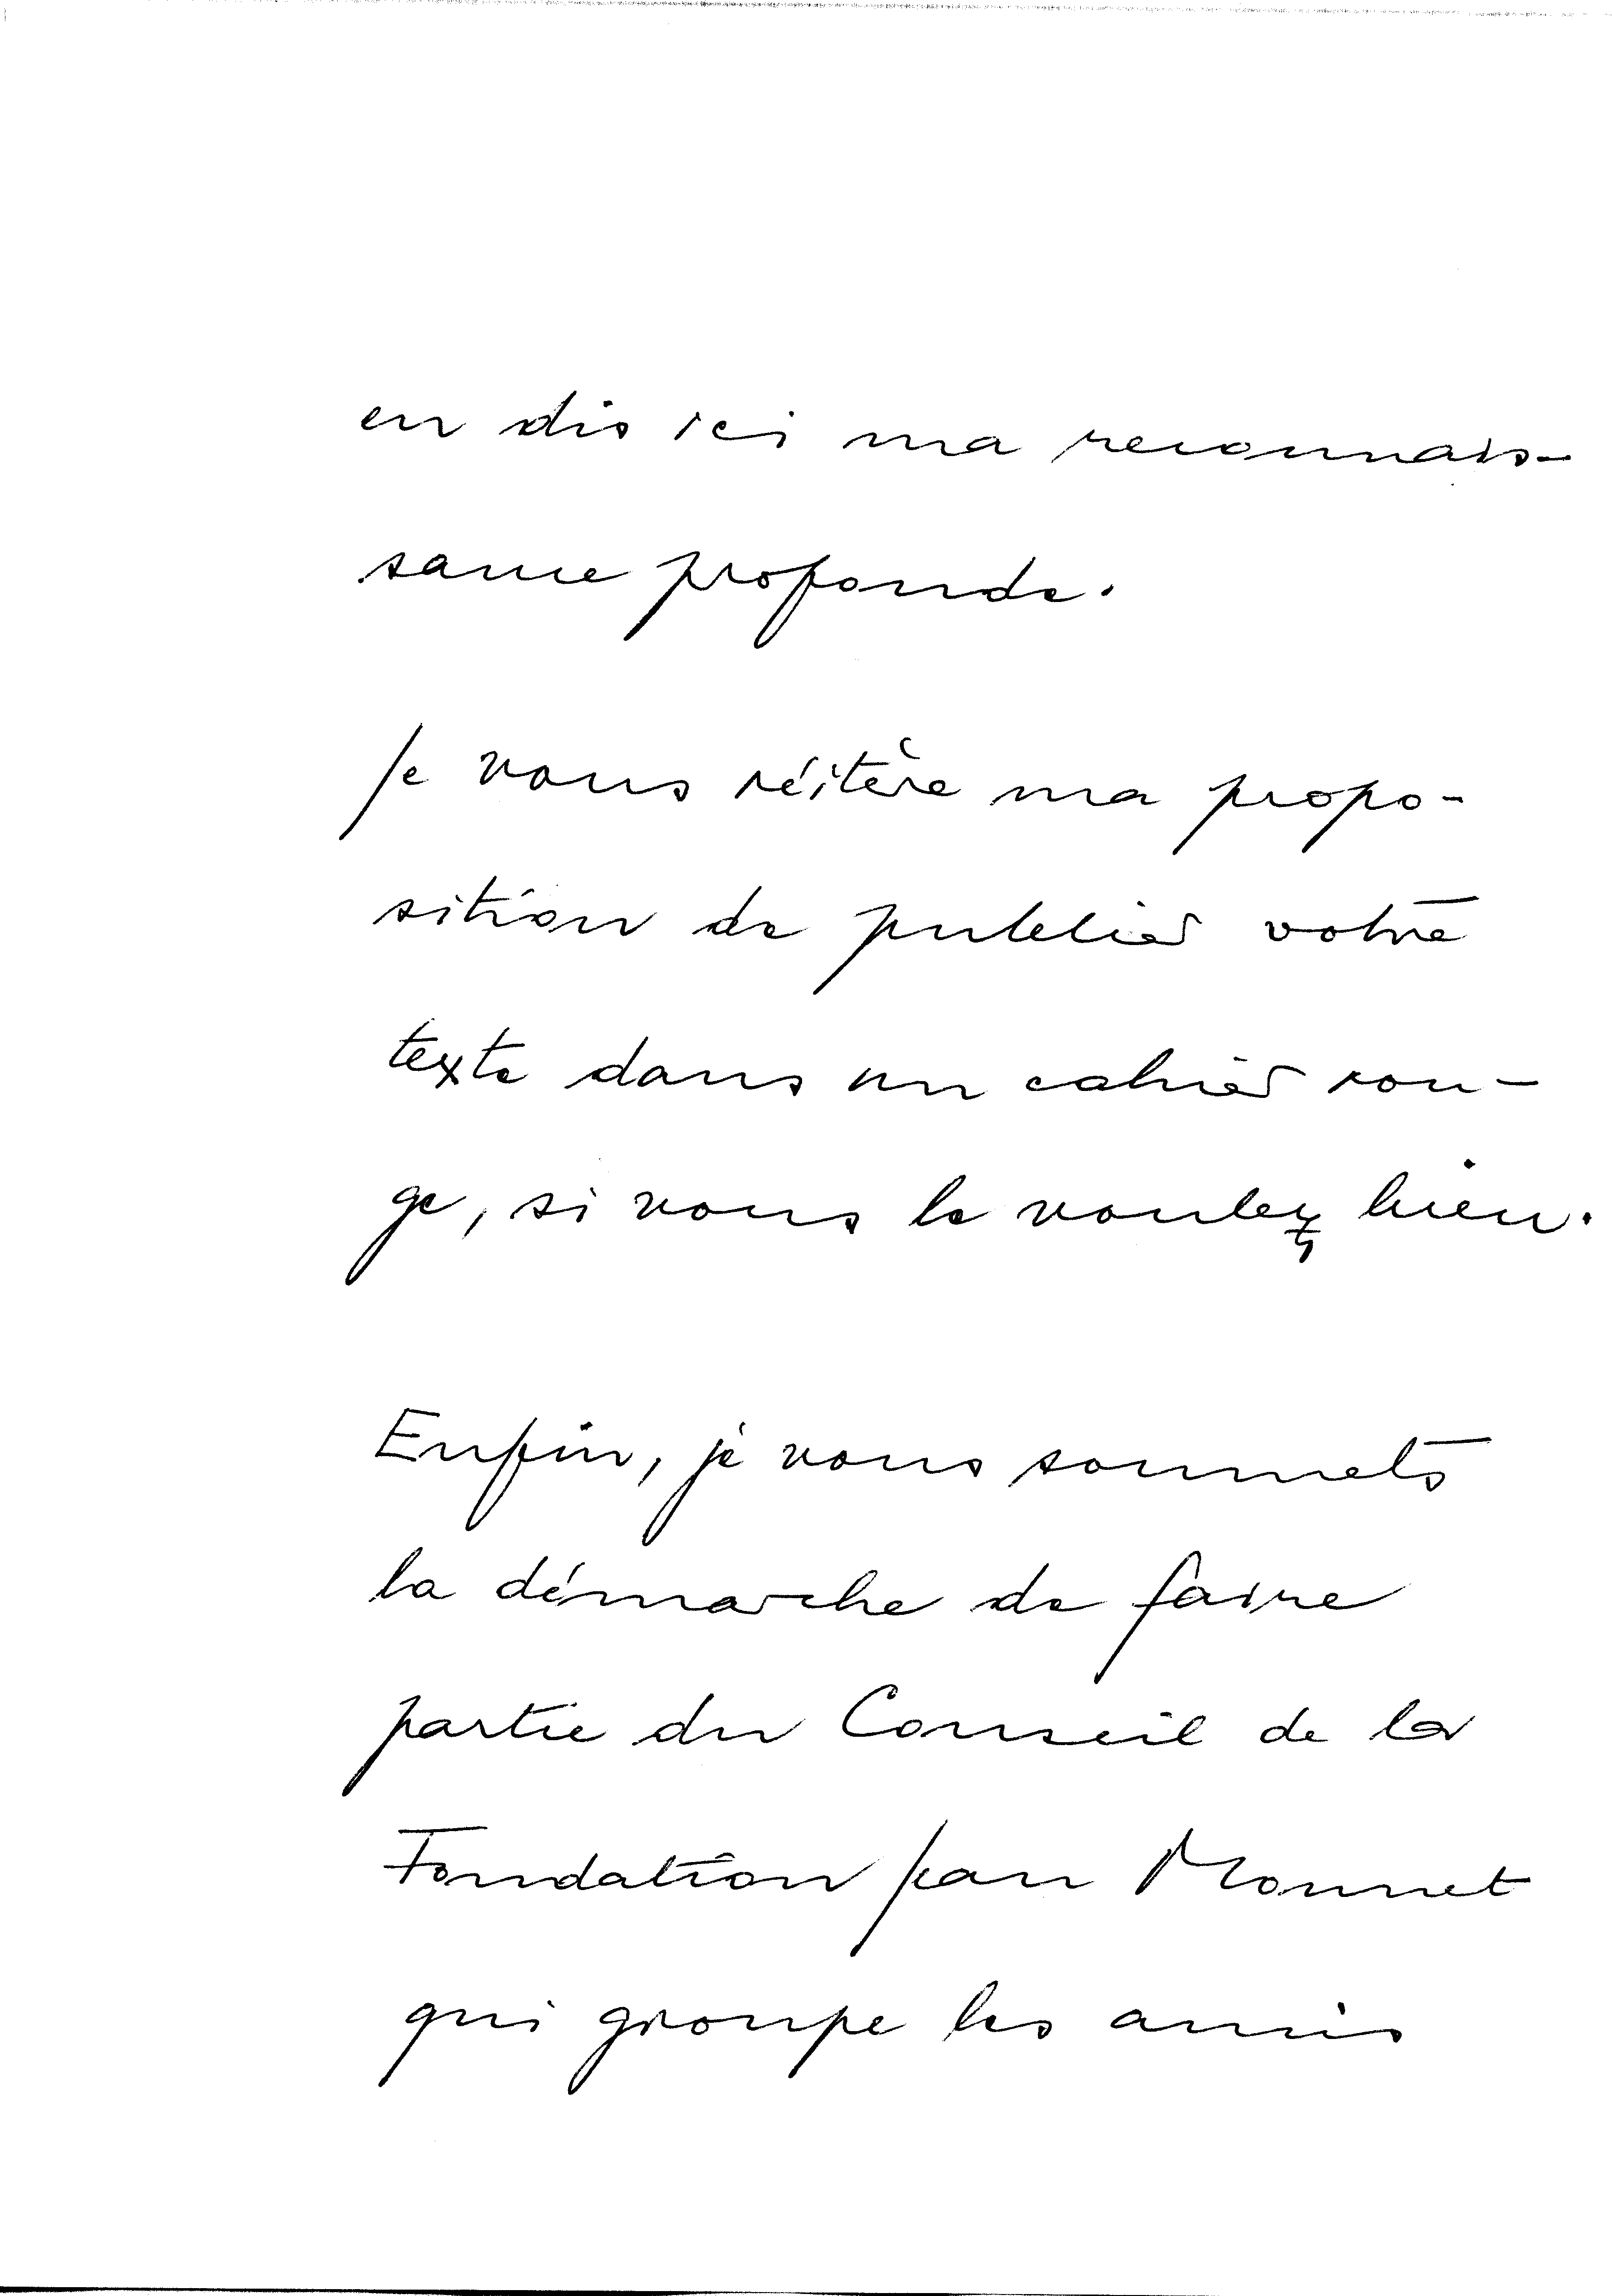 en dis ici ma reconnais-
sance profonde.
Je vous réitère ma propo-
sition de publier votre
texte dans un cahier rou-
ge, si vous le voulez bien.
Enfin, je vous soumets
la démarche de faire
partie du Conseil de la
Fondation Jean Monnet
qui groupe les amis